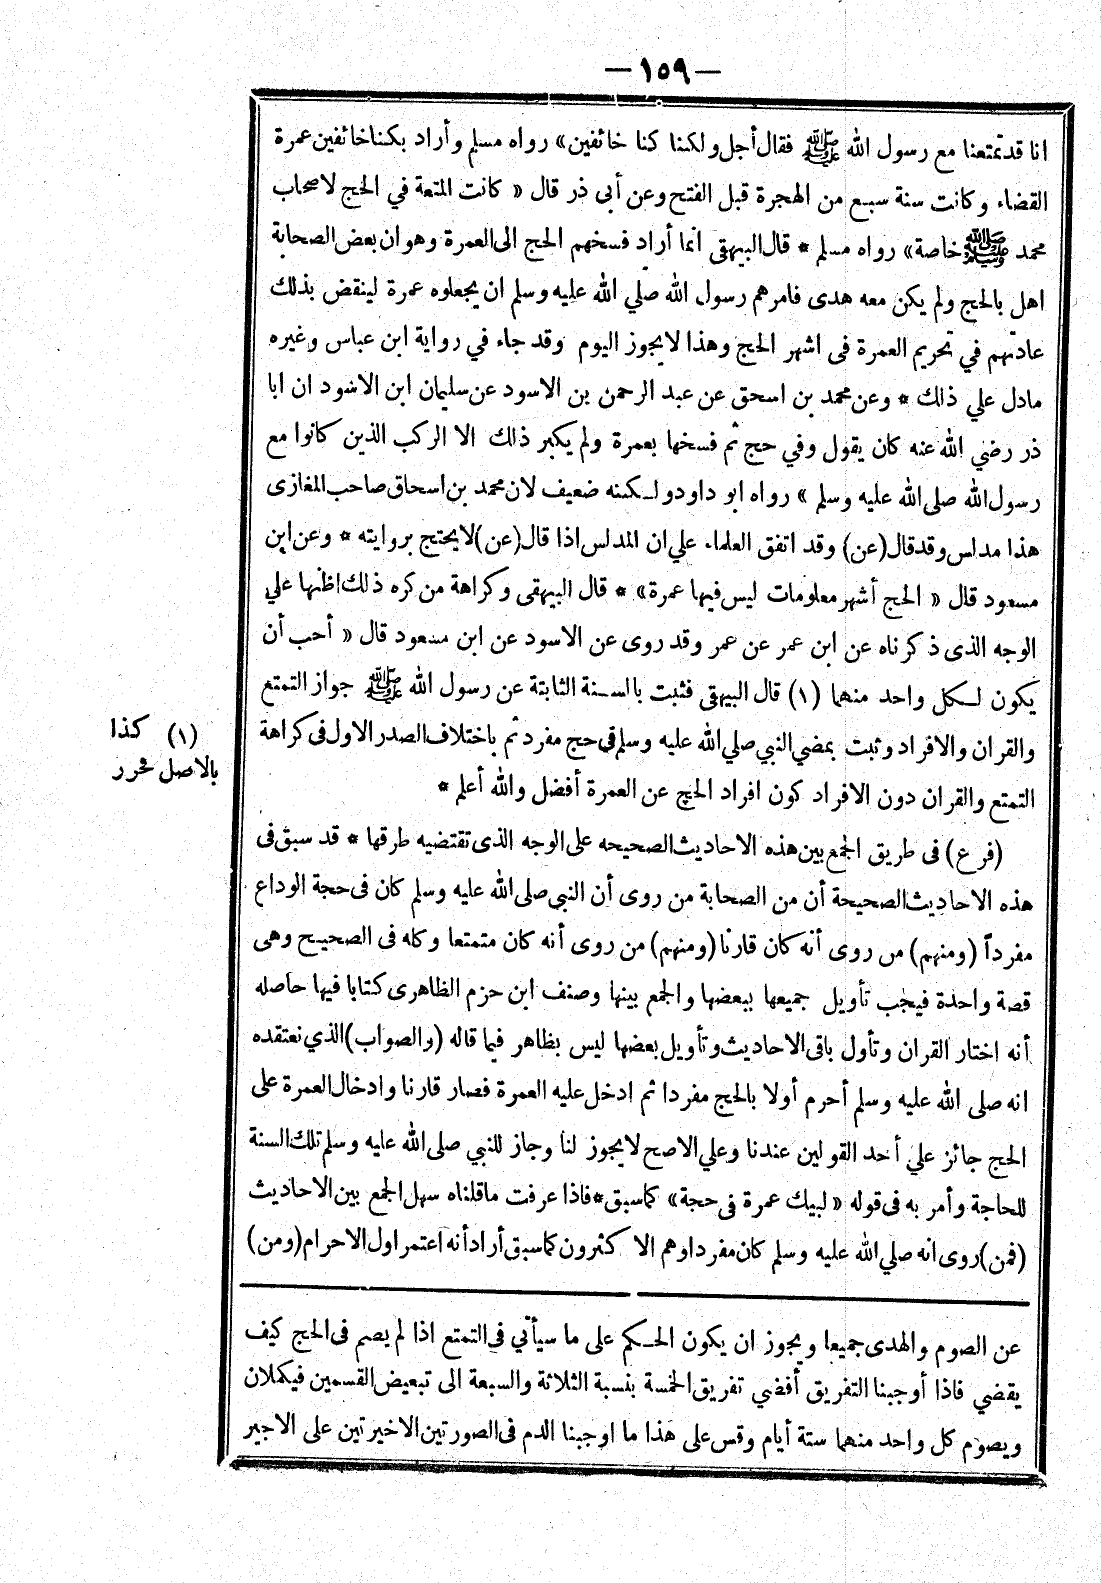 — ١٥٩ —
انا قد تمتعنا مع رسول الله ﷺ فقال أجل ولكنا كنا خائفين» رواه مسلم وأراد بكنا خائفين عمرة
القضاء وكانت سنة سبع من الهجرة قبل الفتح وعن أبى ذر قال « كانت المتعة في الحج لاصحاب
محمد ﷺ خاصة» رواه مسلم * قال البيهقى انما أراد فسخهم الحج الى العمرة وهو ان بعض الصحابة
اهل بالحج ولم يكن معه هدى فامرهم رسول الله صلي الله عليه وسلم ان يجعلوه عمرة لينقض بذلك
عادتهم في تحريم العمرة فى اشهر الحج وهذا لا يجوز اليوم وقد جاء في رواية ابن عباس وغيره
مادل علي ذلك * وعن محمد بن اسحق عن عبد الرحمن بن الاسود عن سليمان ابن الاسود ان ابا
ذر رضي الله عنه كان يقول وفي حج ثم فسخها بعمرة ولم يكبر ذلك الا الركب الذين كانوا مع
رسول الله صلى الله عليه وسلم » رواه ابو داود ولكنه ضعيف لان محمد بن اسحاق صاحب المغازى
هذا مدلس وقد قال (عن) وقد اتفق العلماء علي ان المدلس اذا قال (عن) لا يحتج بروايته * وعن ابن
مسعود قال « الحج أشهر معلومات ليس فيها عمرة» * قال البيهقى وكراهة من كره ذلك اظنها علي
الوجه الذى ذكرناه عن ابن عمر عن عمر وقد روى عن الاسود عن ابن مسعود قال « أحب أن
يكون لكل واحد منهما (١) قال البيهقى فثبت بالسنة الثابتة عن رسول الله ﷺ جواز التمتع
والقران والافراد وثبت بمضي النبي صلي الله عليه وسلم في حج مفرد ثم باختلاف الصدر الاول فى كراهة
التمتع والقران دون الافراد كون افراد الحج عن العمرة أفضل والله أعلم *
(فرع) فى طريق الجمع بين هذه الاحاديث الصحيحه على الوجه الذى تقتضيه طرقها * قد سبق فى
هذه الاحاديث الصحيحة أن من الصحابة من روى أن النبي صلى الله عليه وسلم كان فى حجة الوداع
مفرداً (ومنهم) من روى أنه كان قارنا (ومنهم) من روى أنه كان متمتعا وكله فى الصحيح وهى
قصة واحدة فيجب تأويل جميعها ببعضها والجمع بينها وصنف ابن حزم الظاهرى كتابا فيها حاصله
أنه اختار القران وتأول باقى الاحاديث وتأويل بعضها ليس بظاهر فيما قاله (والصواب) الذي نعتقده
انه صلى الله عليه وسلم أحرم أولا بالحج مفردا ثم ادخل عليه العمرة فصار قارنا وادخال العمرة على
الحج جائز علي أحد القولين عندنا وعلي الاصح لا يجوز لنا وجاز للنبي صلى الله عليه وسلم تلك السنة
للحاجة وأمر به فى قوله « لبيك عمرة فى حجة» كما سبق * فاذا عرفت ما قلناه سهل الجمع بين الاحاديث
(فمن) روى انه صلي الله عليه وسلم كان مفردا وهم الاكثرون كما سبق أراد أنه اعتمر اول الاحرام (ومن)
(١) كذا
بالاصل فحرر
عن الصوم والهدى جميعا ويجوز ان يكون الحكم على ما سيأتي فى التمتع اذا لم يصم فى الحج كيف
يقضي فاذا أوجبنا التفريق أفضي تفريق الخمسة بنسبة الثلاثة والسبعة الى تبعيض القسمين فيكملان
ويصوم كل واحد منهما ستة أيام وقس على هذا ما اوجبنا الدم فى الصورتين الاخيرتين على الاجير